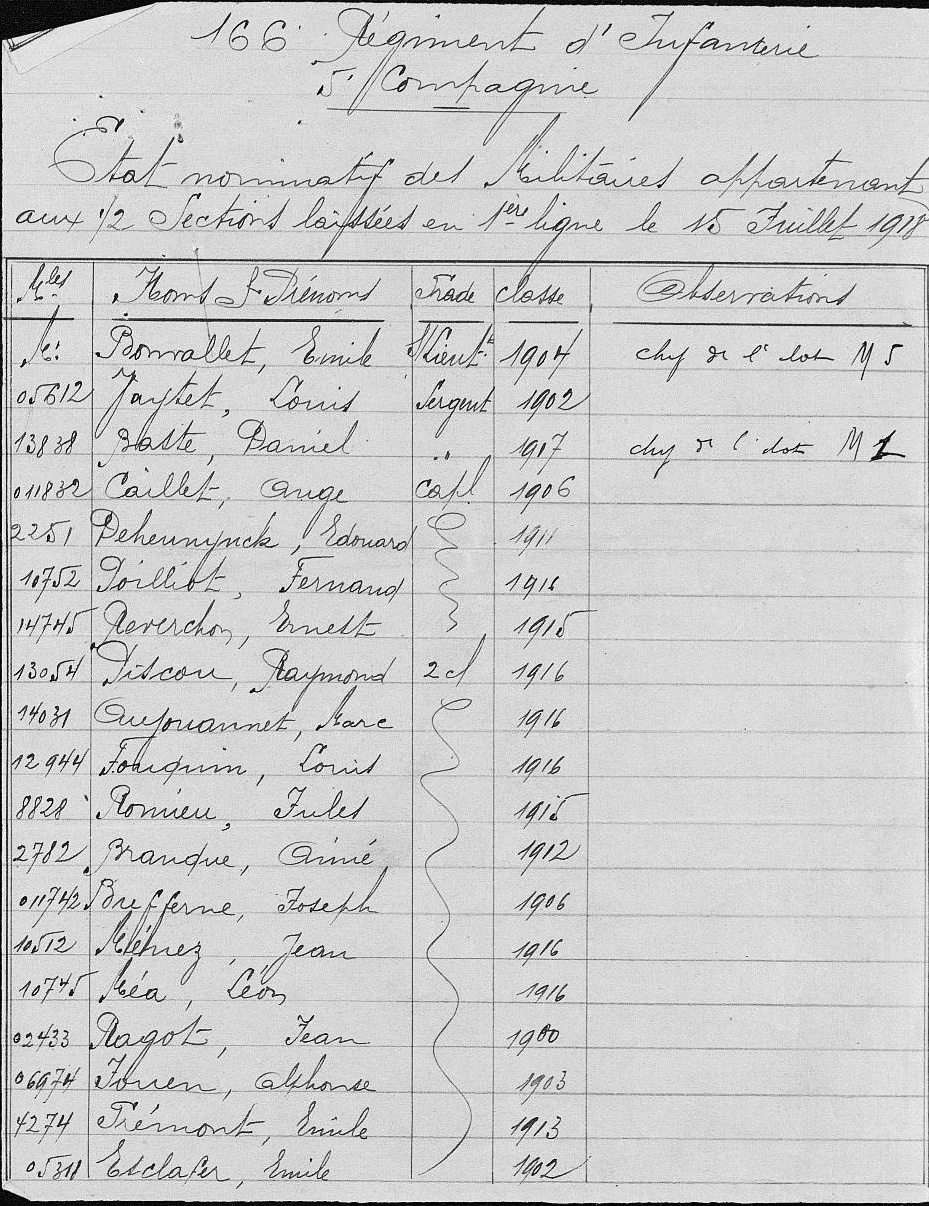 166 Régiment d'Infanterie
5 Compagnie
Etat nominatif des Militaires appartenant
aux 1/2 Sections laissées en 1ère ligne le 15 Juillet 1918
Mles Noms & Prénoms Grade Classe Observations
Mr Bonvallet, Emile S/Lieut 1904 chef de l'ilot M 5
05612 Jaytet, Louis Sergent 1902
13838 Baste, Daniel " 1907 chef de l'ilot M 1
011832 Caillet, Ange Capl 1906
2251 Deheunynck, Edouard 1911
10752 Poilliot, Fernand 1916
14745 Reverchon, Ernest 1915
13054 Piscou, Raymond 2 cl 1916
14031 Aujouannet, Marc 1916
12944 Fouquin, Louis 1916
8828 Romieu, Jules 1915
2782 Branque, Aimé 1912
011742 Brefferne, Joseph 1906
10512 Ménez, Jean 1916
10745 Méa, Léon 1916
02433 Ragot, Jean 1900
06974 Jouen, Alphonse 1903
4274 Trémont, Emile 1913
05318 Esclafer, Emile 1902